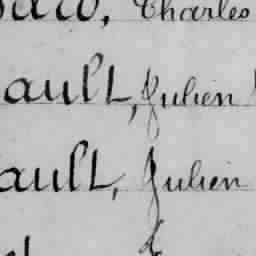 Charles
ault, Julien
ault, Julien